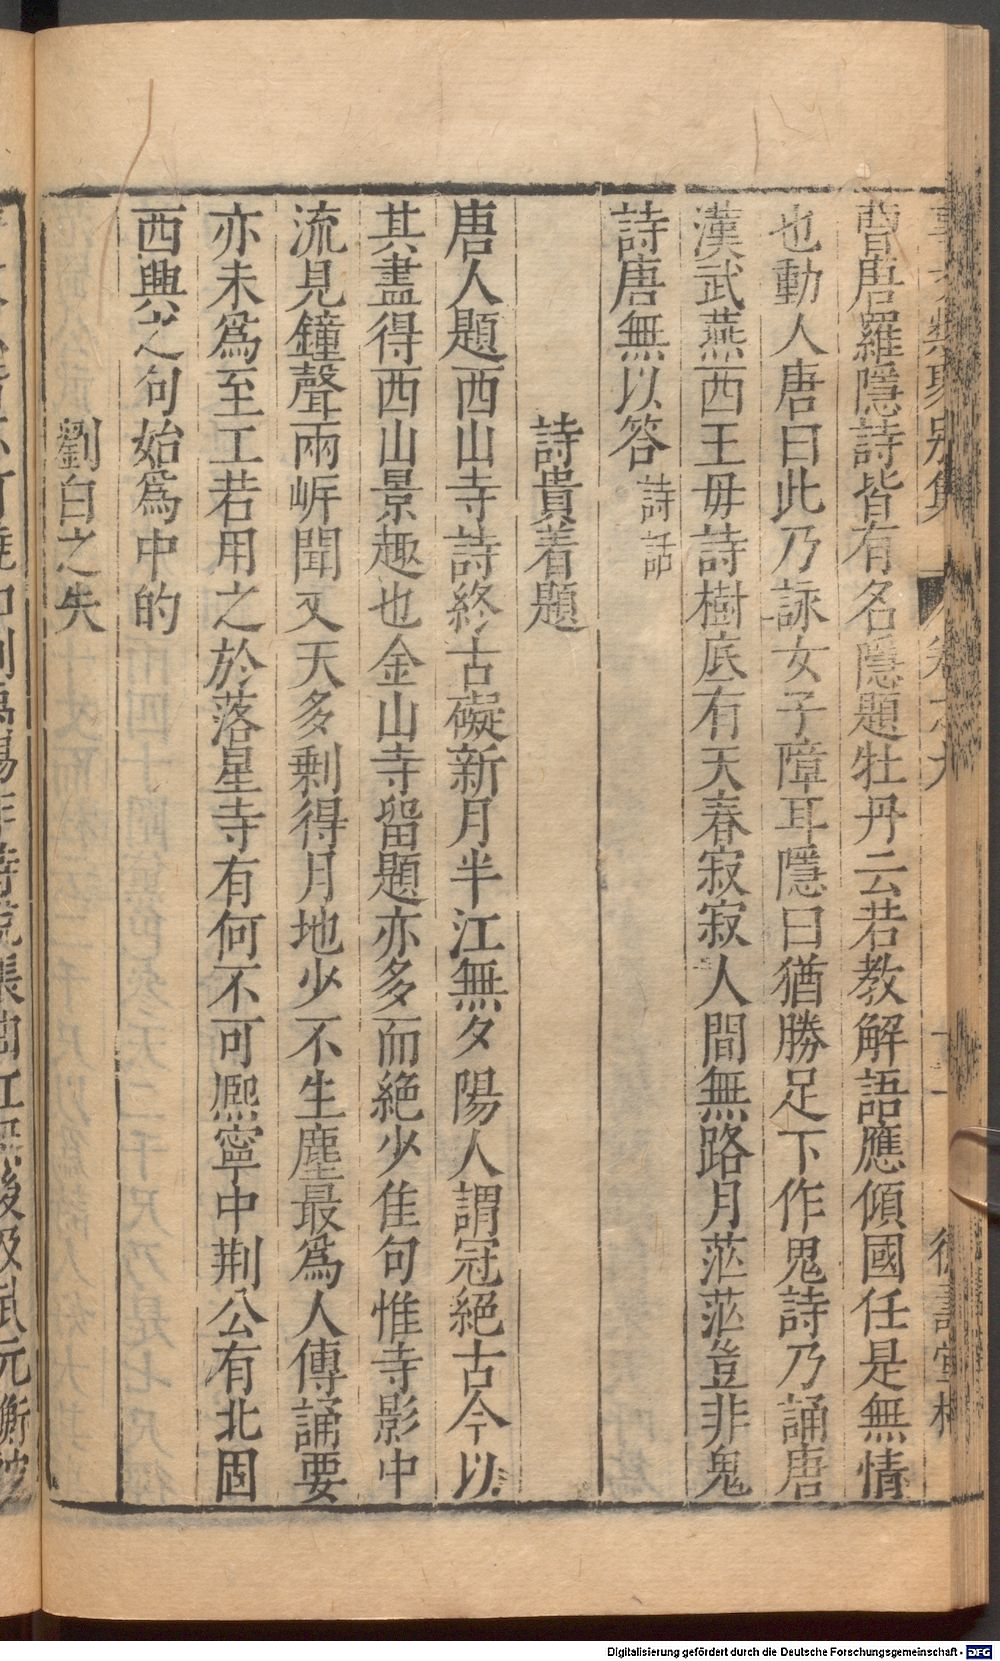 曹唐羅隱詩皆有名隱題牡丹云若教解語應傾國任是無情
也動人唐曰此乃詠女子障耳隱曰猶勝足下作鬼詩乃誦唐
漢武燕西王毋詩樹底有天春寂寂人間無路月茫茫豈非鬼
詩唐無以答詩話
詩貴着題
唐人題西山寺詩終古礙新月半江無夕陽人謂冠絕古今以
其盡得西山景趣也金山寺留題亦多而絕少佳句惟寺影中
流見鐘聲兩岍聞又天多剩得月地少不生塵最爲人傳誦要
亦未爲至工若用之於落星寺有何不可熈寧中荆公有北固
西興之句始爲中的
劉白之失
Digitalisierung gefördert durch die Deutsche Forschungsgemeinschaft - DFG